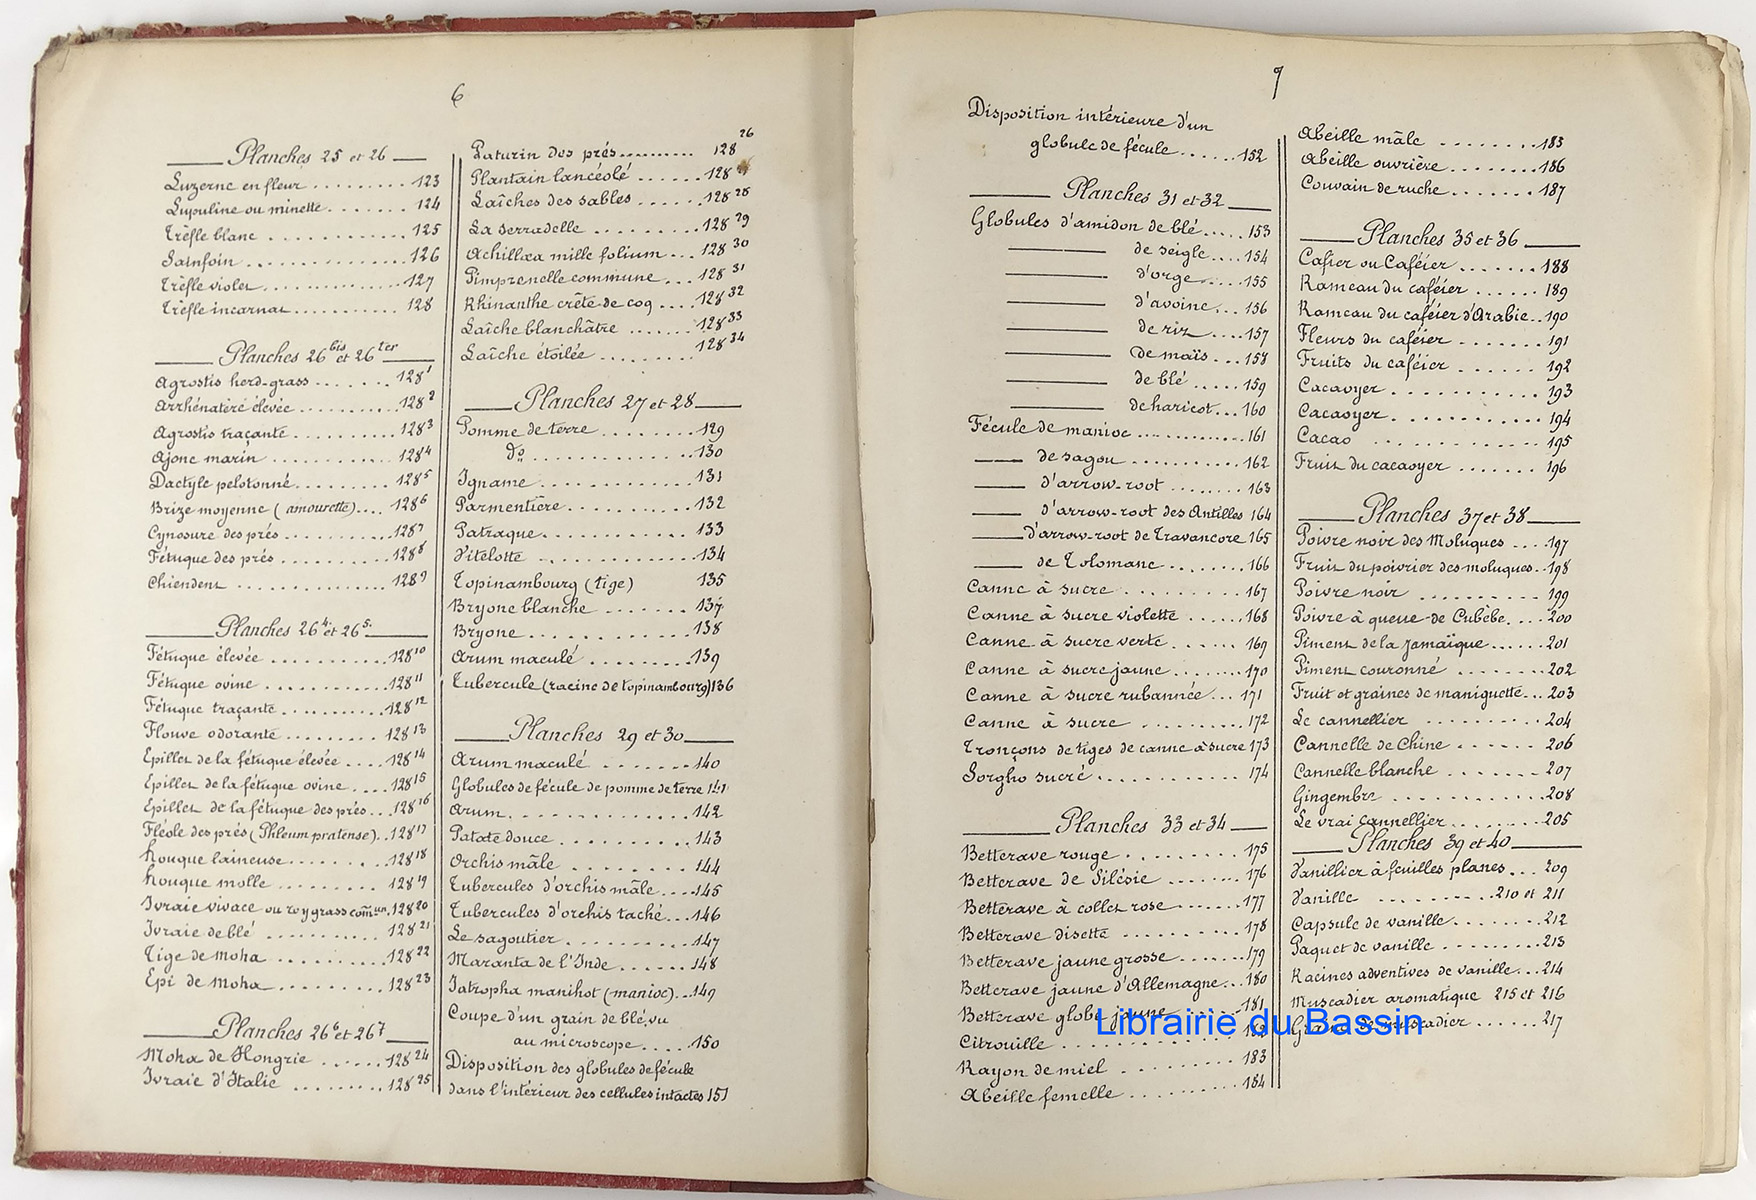 6
Planches 25 et 26
Luzerne en fleur .......... 123
Lupuline ou minette ....... 124
Trèfle blanc ............ 125
Sainfoin .............. 126
Trèfle violet ............. 127
Trèfle incarnat ........... 128
Planches 26 bis et 26 ter
Agrostis herd-grass ....... 128 1
Arrhénatère élevée .......... 128 2
Agrostis traçante .......... 128 3
Ajonc marin ............ 128 4
Dactyle pelotonné ......... 128 5
Brize moyenne (amourette) .... 128 6
Cynosure des prés ........... 128 7
Fétuque des prés ........... 128 8
Chiendent ................ 128 9
Planches 26 4. et 26 5.
Fétuque élevée ............ 128 10
Fétuque ovine ............. 128 11
Fétuque traçante ........... 128 12
Flouve odorante ......... 128 13
Epillet de la fétuque élevée .... 128 14
Epillet de la fétuque ovine .... 128 15
Epillet de la fétuque des prés ... 128 16
Fléole des prés (Phleum pratense) .. 128 17
Houque laineuse .......... 128 18
Houque molle ......... 128 19
Ivraie vivace ou ray grass com un. 128 20
Ivraie de blé ........... 128 21
Tige de moha ........... 128 22
Epi de Moha .......... 128 23
Planches 26 6 et 26 7
Moha de Hongrie ....... 128 24
Ivraie d'Italie ......... 128 25
Paturin des prés .......... 128 26
Plantain lancéolé ...... 128
Laîches des sables ...... 128 28
La serradelle ......... 128 29
Achillæa mille folium ... 128 30
Pimprenelle commune ... 128 31
Rhinanthe crête de coq .... 128 32
Laîche blanchâtre ...... 128 33
Laîche étoilée ........ 128 34
Planches 27 et 28
Pomme de terre ........ 129
do .............. 130
Igname .............. 131
Parmentière ........... 132
Patraque ............ 133
Vitelotte ............ 134
Topinambourg (tige) 135
Bryone blanche ....... 137
Bryone ............ 138
Arum maculé ......... 139
Tubercule (racine de topinambourg) 136
Planches 29 et 30
Arum maculé ....... 140
Globules de fécule de pomme de terre 141
Arum .............. 142
Patate douce .......... 143
Orchis mâle ......... 144
Tubercules d'orchis mâle .... 145
Tubercules d'orchis taché ... 146
Le sagoutier .......... 147
Maranta de l'Inde ...... 148
Jatropha manihot (manioc) ... 149
Coupe d'un grain de blé, vu
au microscope .... 150
Disposition des globules de fécule
dans l'intérieur des cellules intactes 151
7
Disposition intérieure d'un
globule de fécule ...... 152
Planches 31 et 32
Globules d'amidon de blé ..... 153
de seigle .... 154
d'orge ..... 155
d'avoine ... 156
de riz .... 157
de maïs ... 158
de blé ..... 159
de haricot ... 160
Fécule de manioc ............. 161
de sagou ........... 162
d'arrow-root ....... 163
d'arrow-root des Antilles 164
d'arrow-root de Travancore 165
de Tolomane ........ 166
Canne à sucre .......... 167
Canne à sucre violette ...... 168
Canne à sucre verte ...... 169
Canne à sucre jaune ....... 170
Canne à sucre rubannée ... 171
Canne à sucre .......... 172
Tronçons de tiges de canne à sucre 173
Sorgho sucré ............ 174
Planches 33 et 34
Betterave rouge ......... 175
Betterave de Silésie ....... 176
Betterave à collet rose ....... 177
Betterave disette ......... 178
Betterave jaune grosse ....... 179
Betterave jaune d'Allemagne ... 180
Betterave globe jaune ...... 181
Citrouille ............
Rayon de miel ......... 183
Abeille femelle ......... 184
Abeille mâle ........ 185
Abeille ouvrière ........ 186
Couvain de ruche ....... 187
Planches 35 et 36
Cafier ou Caféier ....... 188
Rameau du caféier ...... 189
Rameau du caféier d'Arabie .. 190
Fleurs du caféier ....... 191
Fruits du caféier ...... 192
Cacaoyer ............ 193
Cacaoyer ........... 194
Cacao ............ 195
Fruit du cacaoyer ....... 196
Planches 37 et 38
Poivre noir des Moluques .... 197
Fruit du poivrier des moluques .. 198
Poivre noir .......... 199
Poivre à queue de Cubèbe .... 200
Piment de la Jamaïque ...... 201
Piment couronné ....... 202
Fruit et graines de maniguette ... 203
Le cannellier ......... 204
Cannelle de Chine ...... 206
Cannelle blanche ....... 207
Gingembre .......... 208
Le vrai cannellier ....... 205
Planches 39 et 40
Vanillier à feuilles planes ... 209
Vanille ......... 210 et 211
Capsule de vanille ........ 212
Paquet de vanille ......... 213
Racines adventives de vanille ... 214
Muscadier aromatique 215 et 216
muscadier ...... 217
Librairie du Bassin